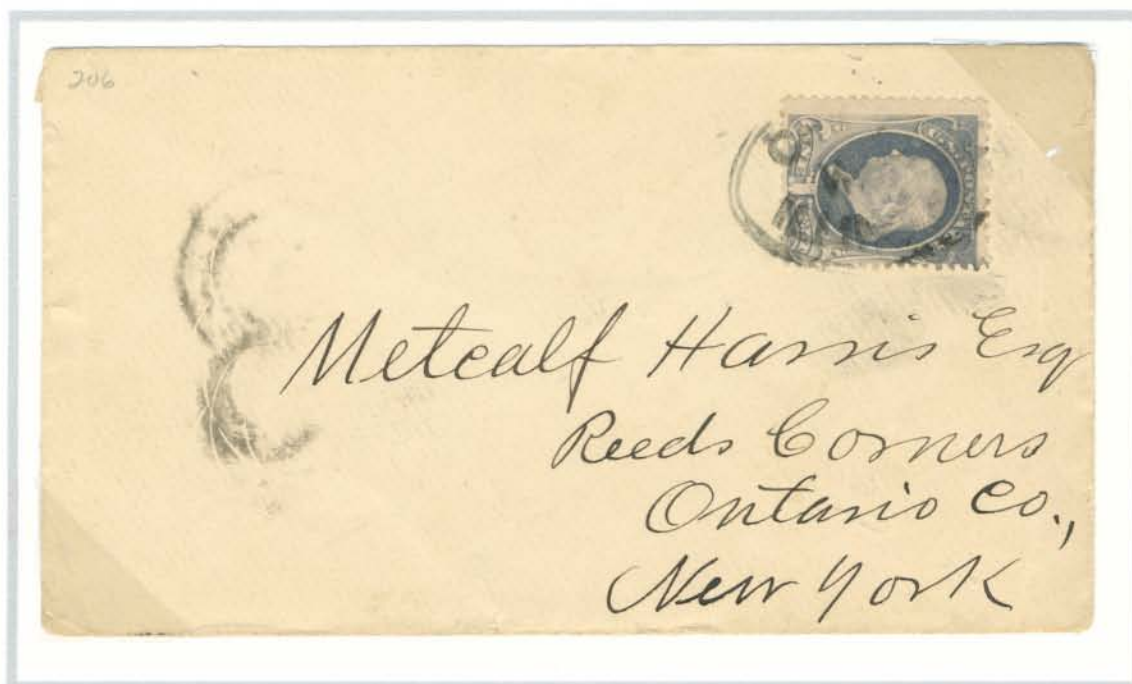 206
Metcalf Harris Esq
Reeds Corners
Ontario Co.,
New York